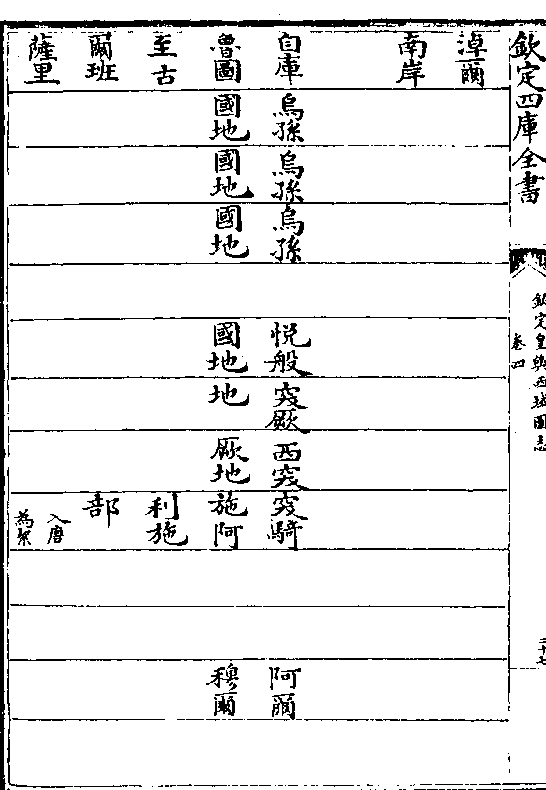 欽定四庫全書
欽定皇輿西域圖志
卷四
二十七
淖爾
南岸
自庫
魯圖
至古
爾班
薩里
烏孫
國地
烏孫
國地
烏孫
國地
悅般
國地
突厥
地
西突
厥地
突騎
施阿
利施
部
入唐
為絜
阿爾
穆爾